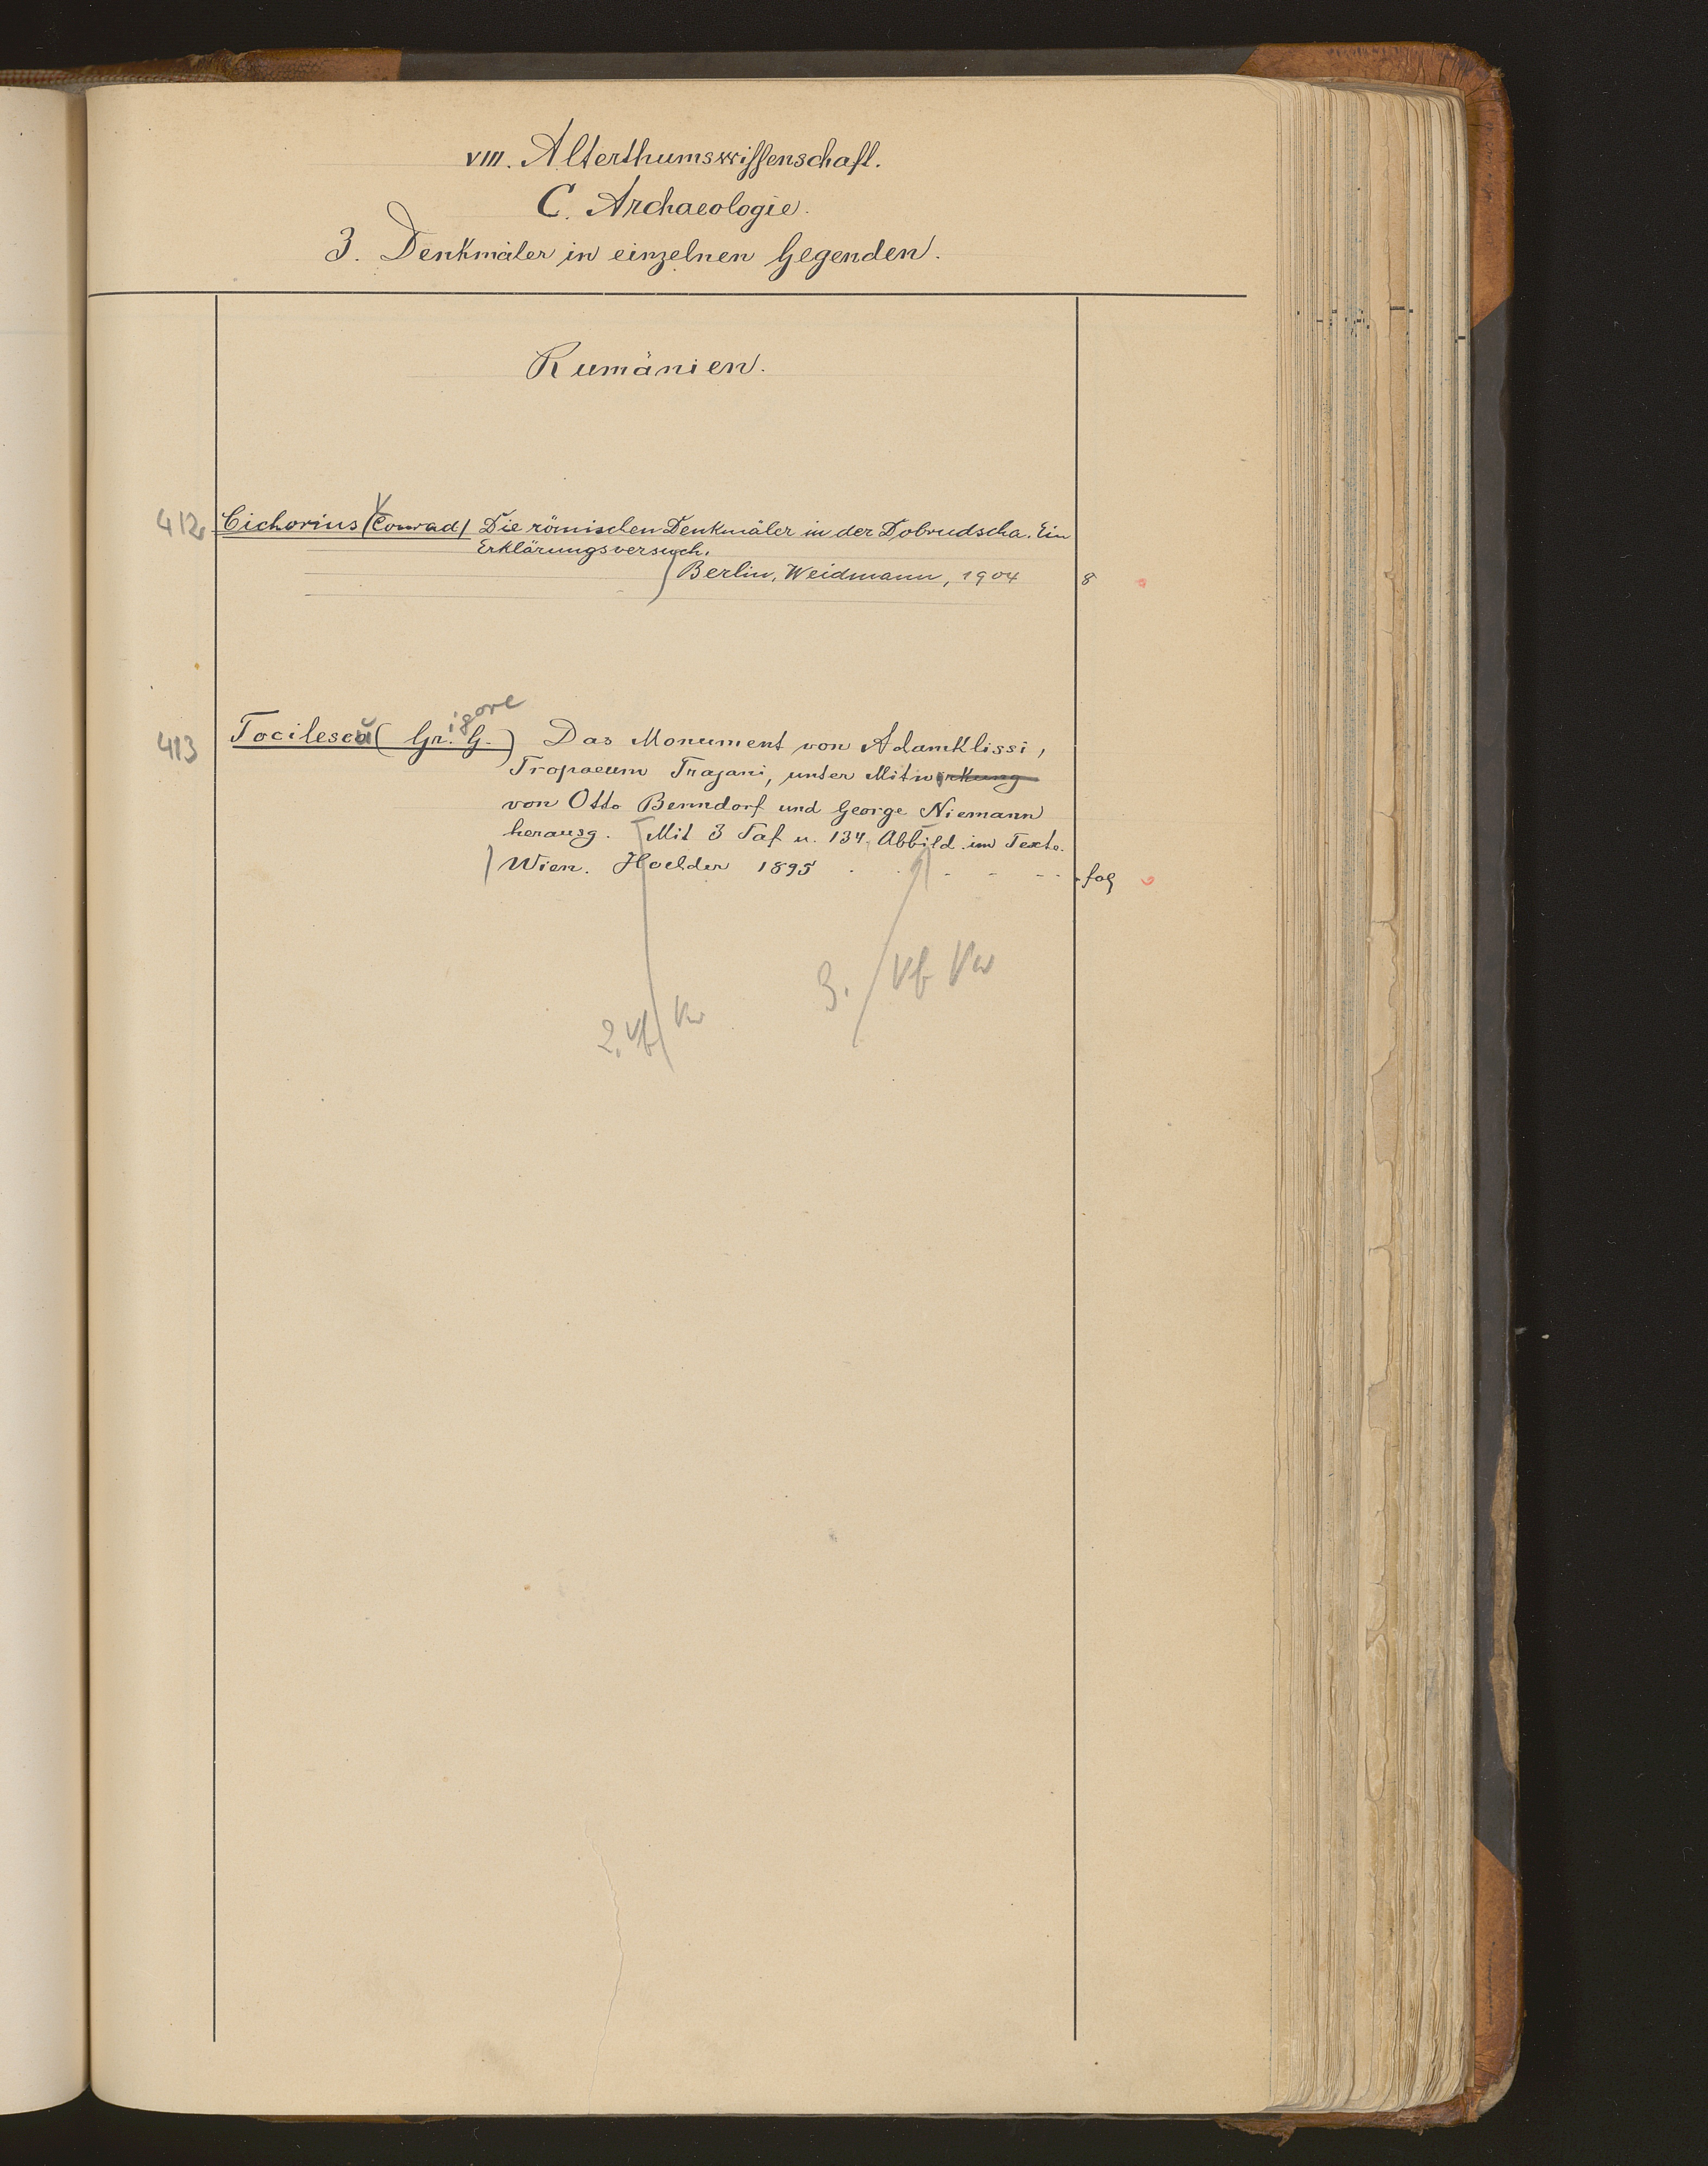 VIII. Alterthumswissenschaft.
C. Archaeologie.
3. Denkmäler in einzelnen Gegenden.
Rumänien.
412 Cichorius (Conrad) Die römischen Denkmäler in der Dobrudscha. Ein
Erklärungsversuch.
Berlin, Weidmann, 1904 8
igore
413 Tocilescŭ (Gr. G.) Das Monument von Adamklissi,
Tropaeum Trajani, unter Mitwirkung
von Otto Benndorf und George Niemann
herausg. Mit 3 Taf u. 134 Abbild. im Texte.
Wien. Hoelder 1895 . . . . - - - fol
3. Vb Vw
2. Vb Vw